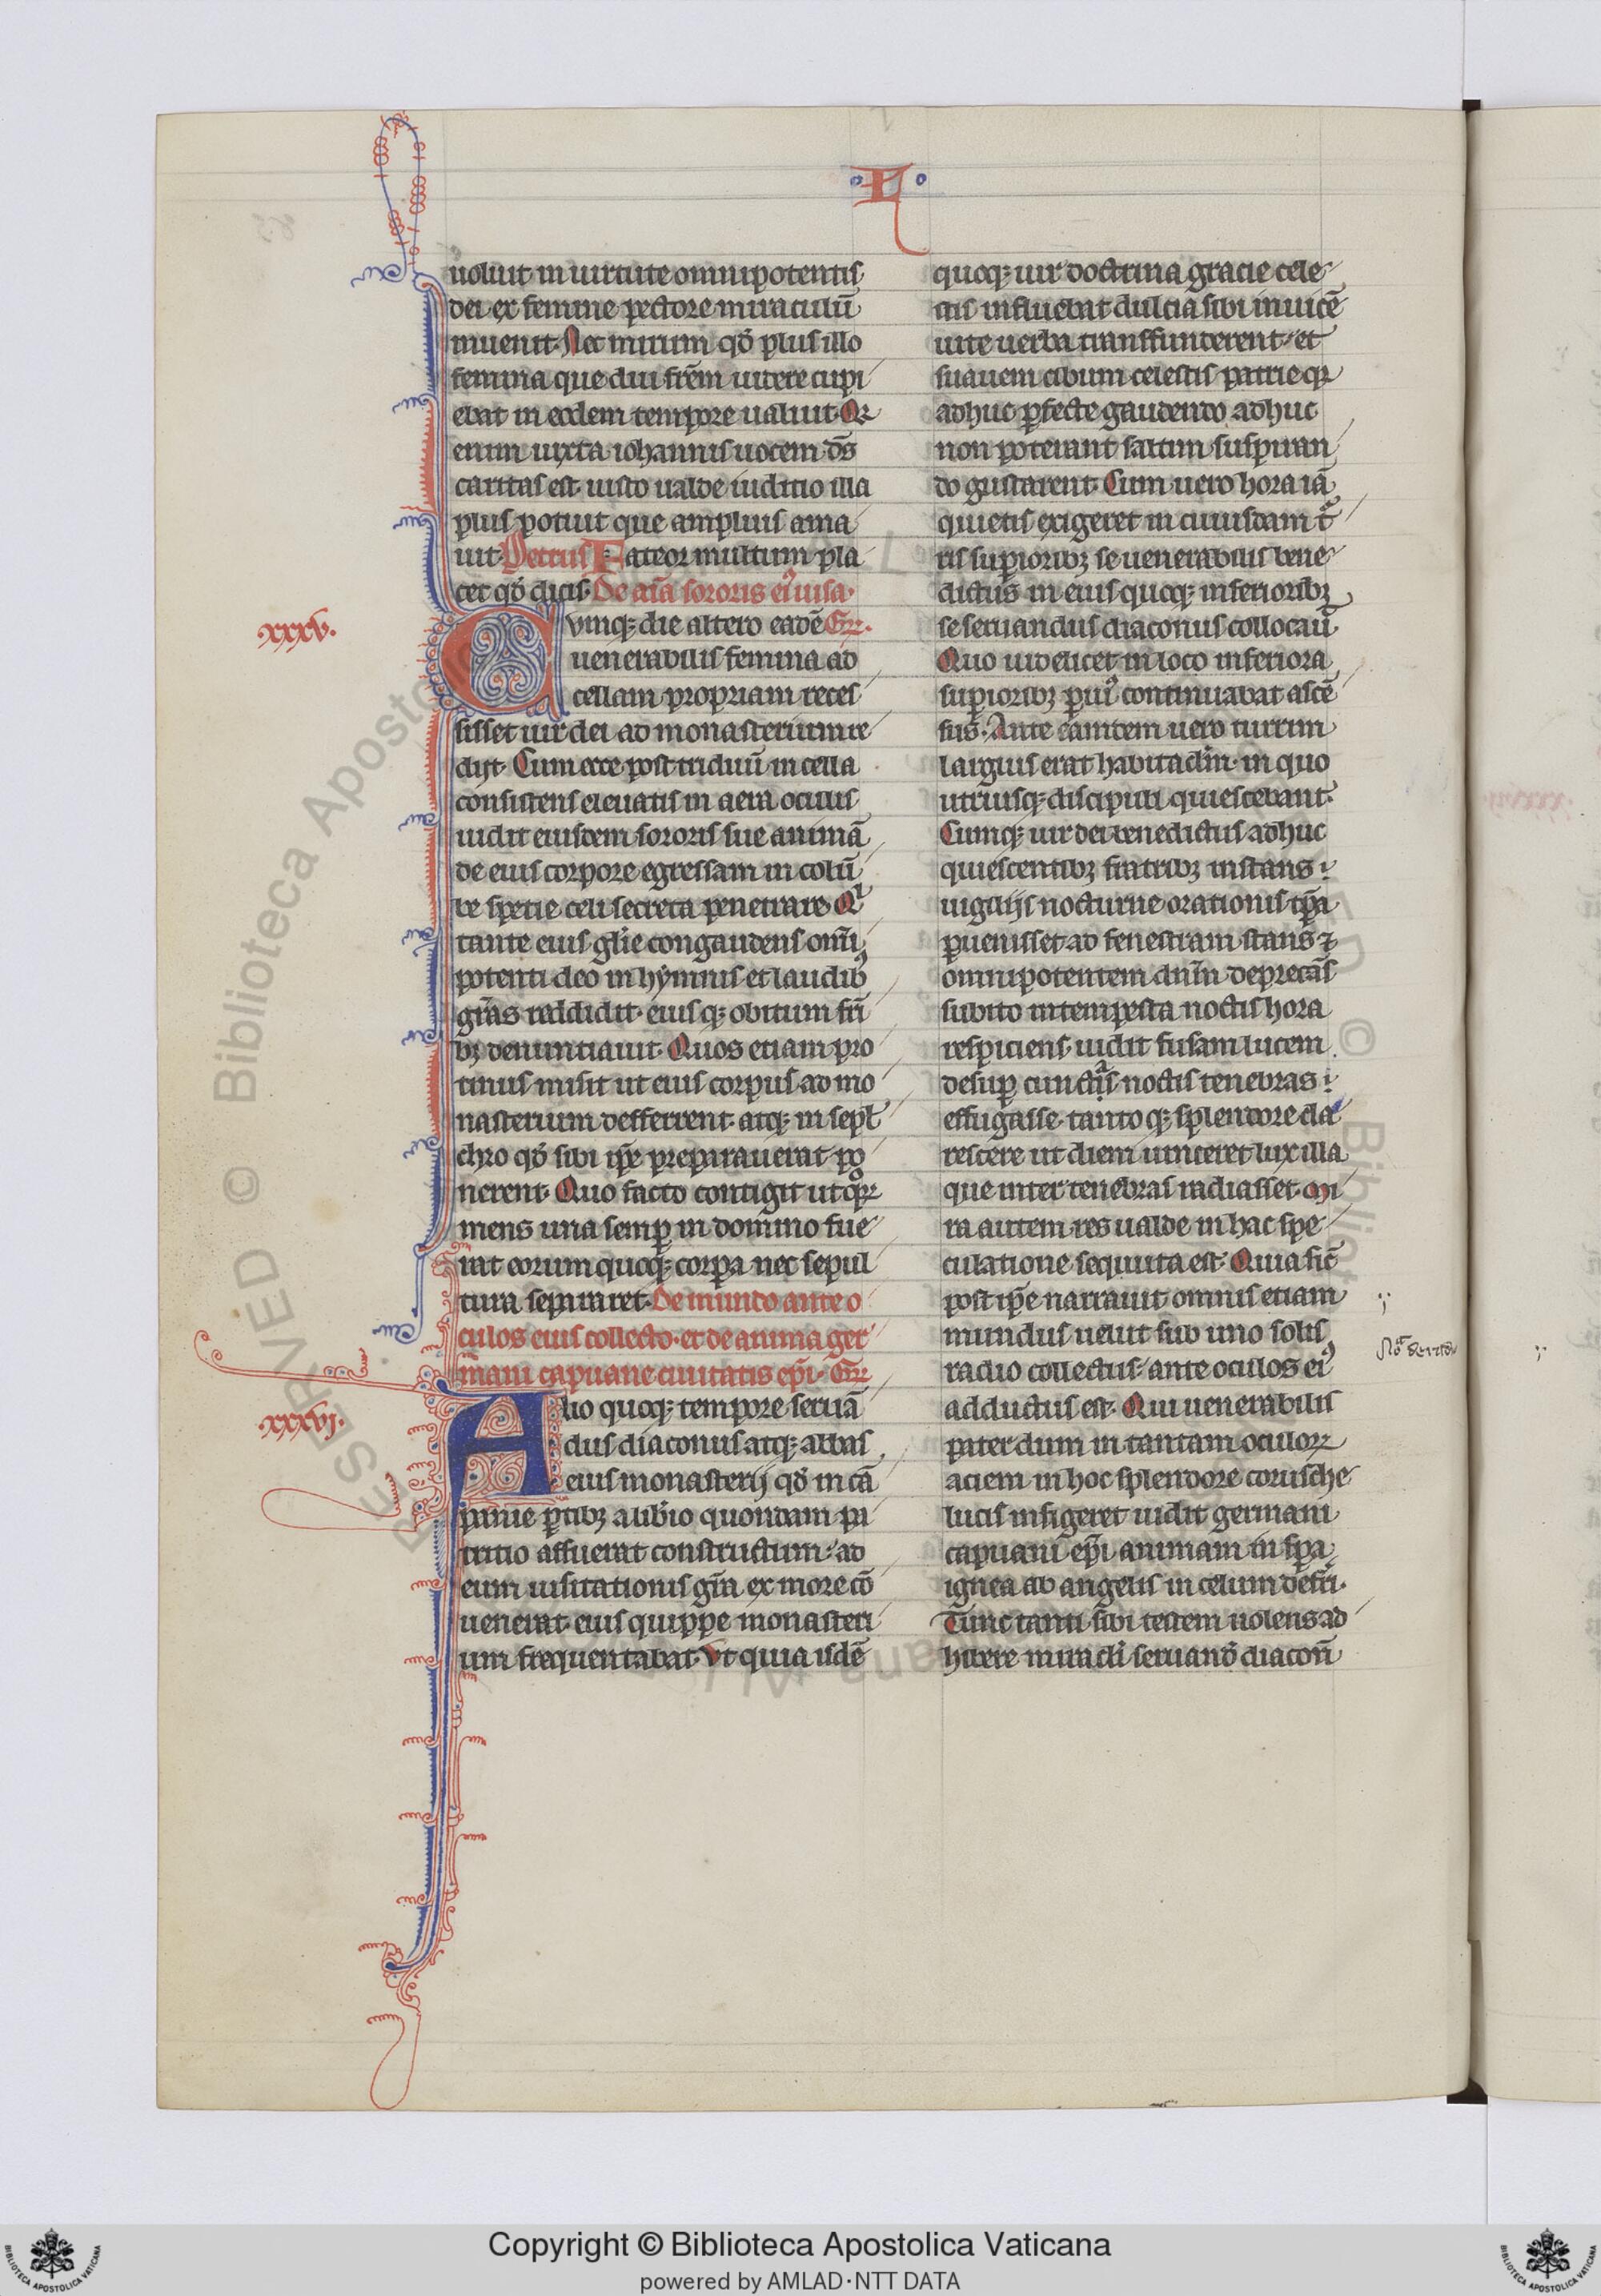 L
uoluit in uirtute omnipotentis
dei ex femine pectore miraculū
inuenit. Nec mirum qđ plus illo
femina que diu frēm uidere cupi
ebat in eodem tempore ualuit. Qꝛ
enim iuxta iohannis uocem d̄s
caritas est. iusto ualde iuditio illa
plus potuit que amplius ama
uit. Petrus. Fateor multum pla
cet qđ dicis. De aīa sororis eiꝰ uisa.
xxxv.
Cvmqꝫ die altero eadē Gꝛ.
uenerabilis femina ad
cellam propriam reces
sisset uir dei ad monasterium re
dijt. Cum ecce post triduū in cella
consistens eleuatis in aera oculis
uidit eiusdem sororis sue animā
de eius corpore egressam in colū
be spetie celi secreta penetrare. Qͥ
tante eius gl̄ie congaudens om̄i
potenti deo in hymnis et laudibꝰ
gr̄as reddidit. eiusqꝫ obitum fr̄i
bꝫ denuntiauit. Quos etiam pro
tinus misit ut eius corpus ad mo
nasterium defferrent. atqꝫ in sepl̄
chro qđ sibi ip̄e preparauerat po
nerent. Quo facto contigit ut qͦꝝ
mens una semꝑ in domino fue
rat eorum quoqꝫ corpa nec sepul
tura separaret. De mundo ante o
culos eius collecto. et de anima ger
mani capuane ciuitatis ep̄i. Gꝛ
xxxvj.
Alio quoqꝫ tempore seruā
dus diaconus atqꝫ abbas
eius monasterij qđ in cā
panie ꝑtibꝫ a liƀio quondam pa
tritio affuerat constructum. ad
eum uisitationis gr̄a ex more cō
uenerat. eius quippe monasteri
um frequentabat. Vt quia isdē
quoqꝫ uir doctrina gracie cele
stis influebat dulcia sibi inuicē
uite uerba transffunderent. et
suauem cibum celestis patrie qꝛ
adhuc ꝑfecte gaudendo adhuc
non poterant saltim suspiran
do gustarent. Cum uero hora iā
quietis exigeret in cuiusdam tͬ
ris suꝑioribꝫ se uenerabilis bene
dictus in eius quoqꝫ inferioribꝫ
se seruandus diaconus collocaū
Quo uidelicet in loco inferiora
suꝑioribꝫ ꝑuiꝰ continuabat ascē
sus. Ante eamdem uero turrim
largius erat habitaclm̄. in quo
utriusqꝫ discipuli quiescebant.
Cumqꝫ uir dei benedictus adhuc
quiescentibꝫ fratribꝫ instans
uigilijs nocturne orationis tp̄a
ꝑuenisset ad fenestram stans ⁊
omnipotentem dn̄m deprecās
subito intempesta noctis hora
respiciens. uidit fusam lucem
desuꝑ cunctas noctis tenebras
effugasse. tantoqꝫ splendore cla
rescere ut diem uinceret lux illa
que inter tenebras radiasset. Mi
ra autem res ualde in hac spe
culatione sequuta est. Quia sic̄
post ip̄e narrauit omnis etiam
mundus uelut sub uno solis
radio collectus. ante oculos eiꝰ
adductus est. Qui uenerabilis
pater dum in tantam oculoꝝ
aciem in hoc splendore corusche
lucis infigeret uidit germani
capuani ep̄i animam in spa
ignea ab angelis in celum defr̄i.
Tunc tanti sibi testem uolens ad
hibere miracli seruand̄ diacon̄
RESERVED © Biblioteca Apostolica
Copyright © Biblioteca Apostolica Vaticana
powered by AMLAD·NTT DATA
BIBLIOTECA APOSTOLICA VATICANA
BIBLIOTECA APOSTOLICA VATICANA